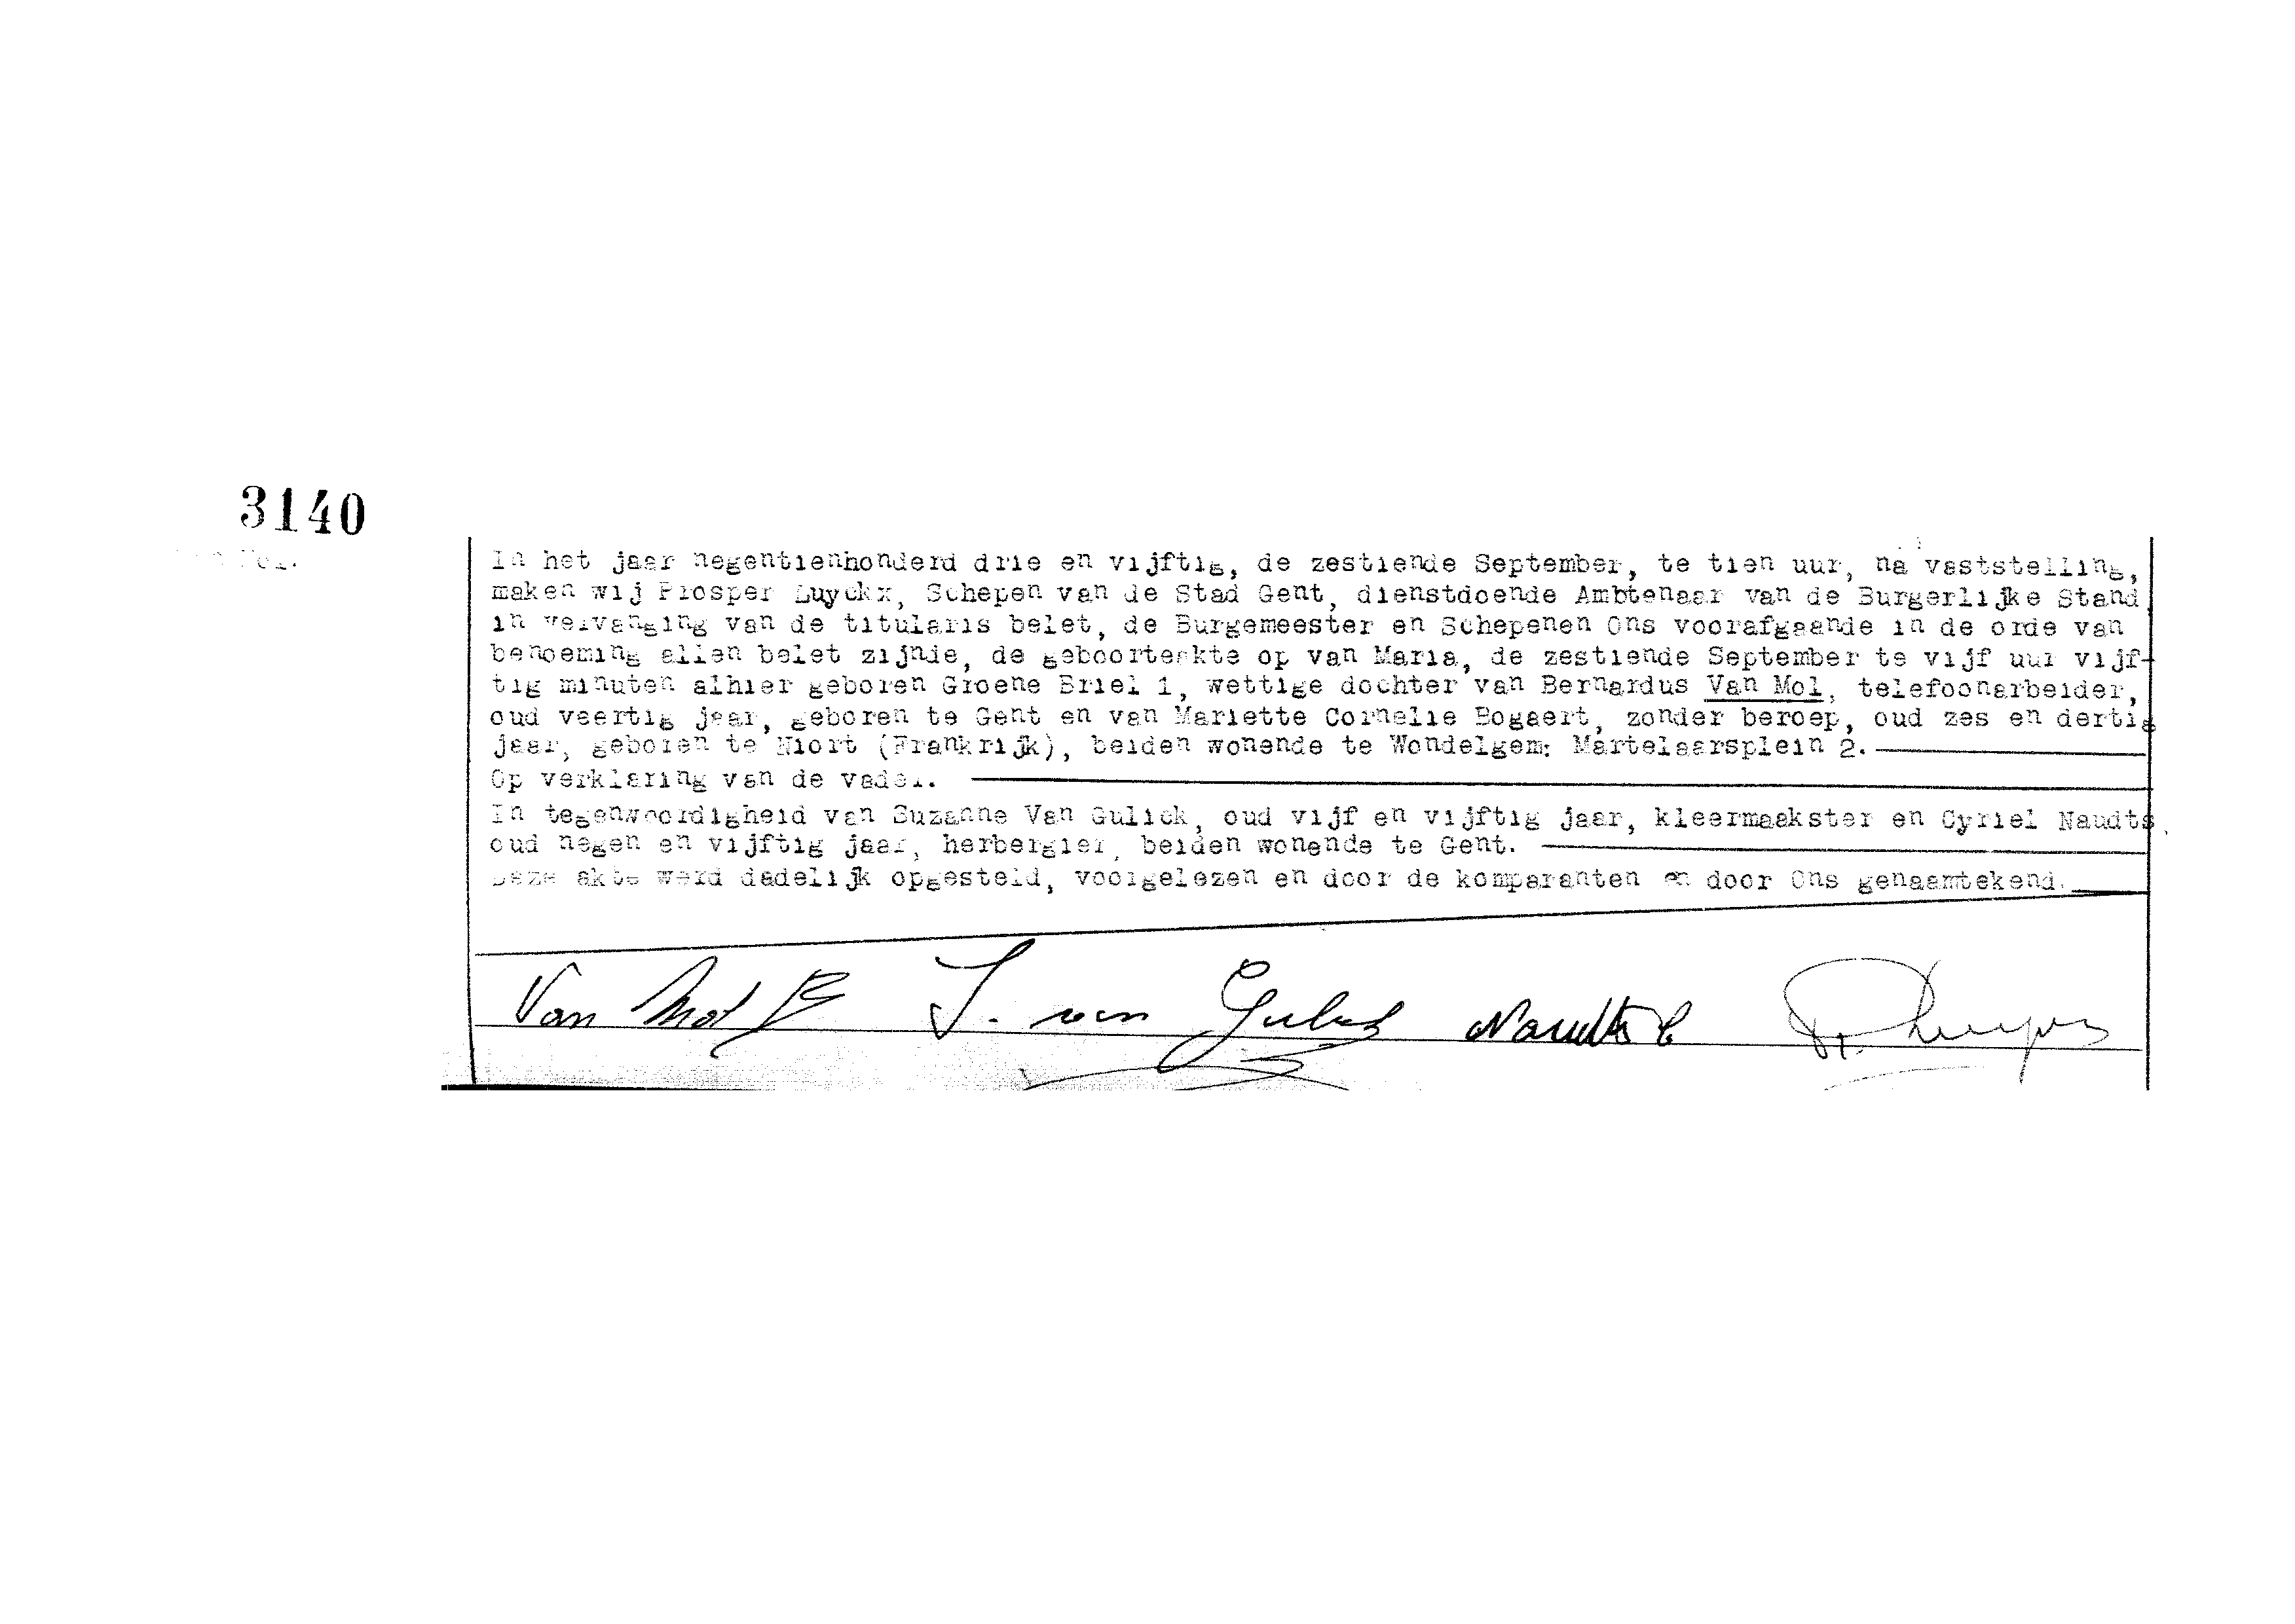 3140
In het jaar negentienhonderd drie en vijftig, de zestiende September, te tien uur, na vaststelling,
maken wij Prosper Luyckx, Schepen van de Stad Gent, dienstdoende Ambtenaar van de Burgerlijke Stand
in vervanging van de titularis belet, de Burgemeester en Schepenen Ons voorafgaande in de orde van
benoeming allen belet zijnde, de geboorteakte op van Maria, de zestiende September te vijf uur vijf-
tig minuten alhier geboren Groene Briel 1, wettige dochter van Bernardus Van Mol, telefoonarbeider,
oud veertig jaar, geboren te Gent en van Mariette Cornelie Bogaert, zonder beroep, oud zes en dertig
jaar, geboren te Niort (Frankrijk), beiden wonende te Wondelgem: Martelaarsplein 2.
Op verklaring van de vader.
In tegenwoordigheid van Suzanne Van Gulick, oud vijf en vijftig jaar, kleermaakster en Cyriel Naudts,
oud negen en vijftig jaar, herbergier, beiden wonende te Gent.
Deze akte werd dadelijk opgesteld, voorgelezen en door de komparanten en door Ons genaamtekend.
Van Mol B S. van Gulick Naudts C Pr. Luyckx